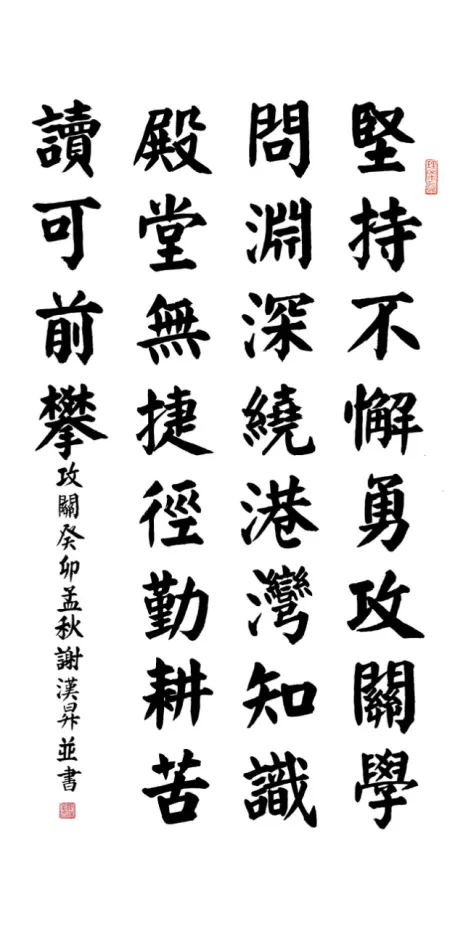 堅持不懈勇攻關學
問淵深繞港灣知識
殿堂無捷徑勤耕苦
讀可前攀
攻關癸卯孟秋謝漢昇並書